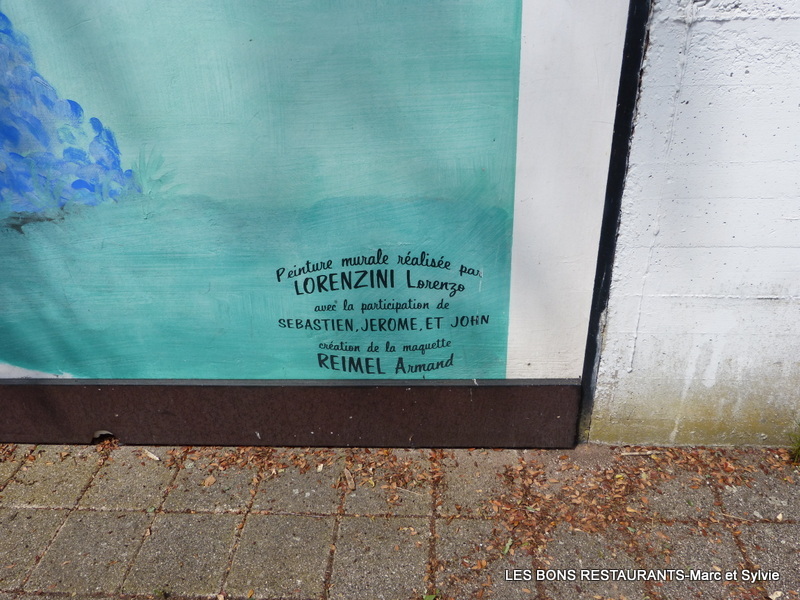 Peinture murale réalisée par
LORENZINI Lorenzo
avec la participation de
SEBASTIEN, JEROME, ET JOHN
création de la maquette
REIMEL Armand
LES BONS RESTAURANTS-Marc et Sylvie